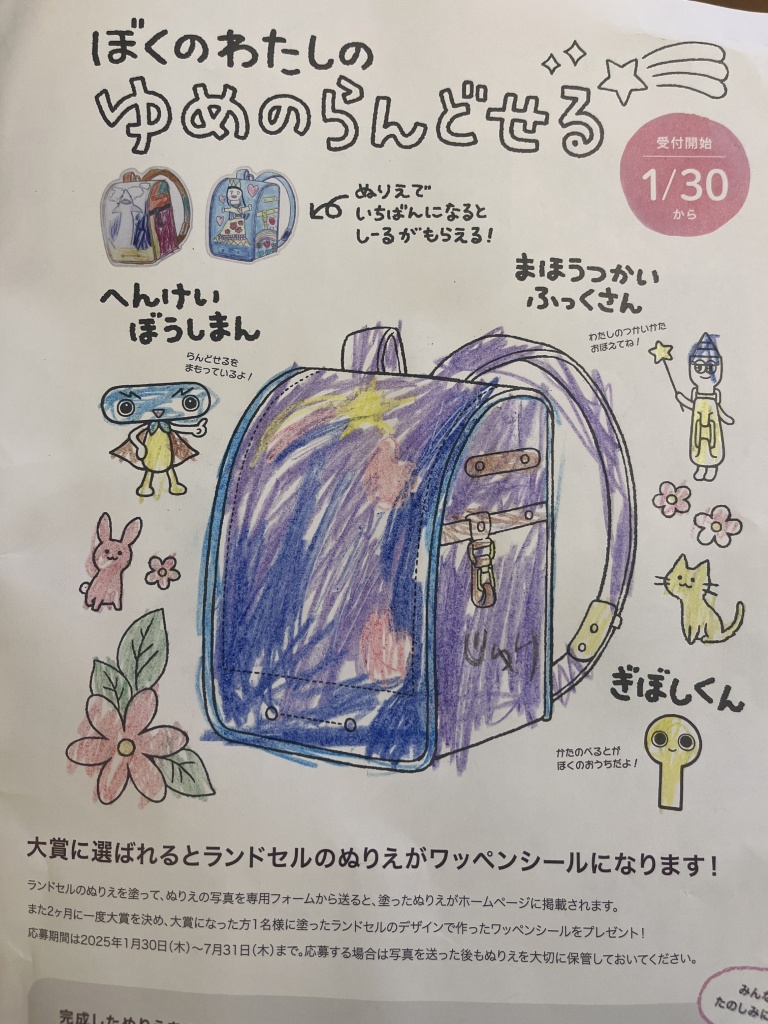 ぼくのわたしの
ゆめのらんどせる
受付開始
1/30
から
ぬりえで
いちばんになると
しーるがもらえる!
まほうつかい
ふっくさん
わたしのつかいかた
おぼえてね!
へんけい
ぼうしまん
らんどせるを
まもっているよ!
ぎぼしくん
かたのべるとが
ぼくのおうちだよ!
大賞に選ばれるとランドセルのぬりえがワッペンシールになります!
ランドセルのぬりえを塗って、ぬりえの写真を専用フォームから送ると、塗ったぬりえがホームページに掲載されます。
また2ヶ月に一度大賞を決め、大賞になった方1名様に塗ったランドセルのデザインで作ったワッペンシールをプレゼント!
応募期間は2025年1月30日(木)〜7月31日(木)まで。応募する場合は写真を送った後もぬりえを大切に保管しておいてください。
みんな
たのしみに